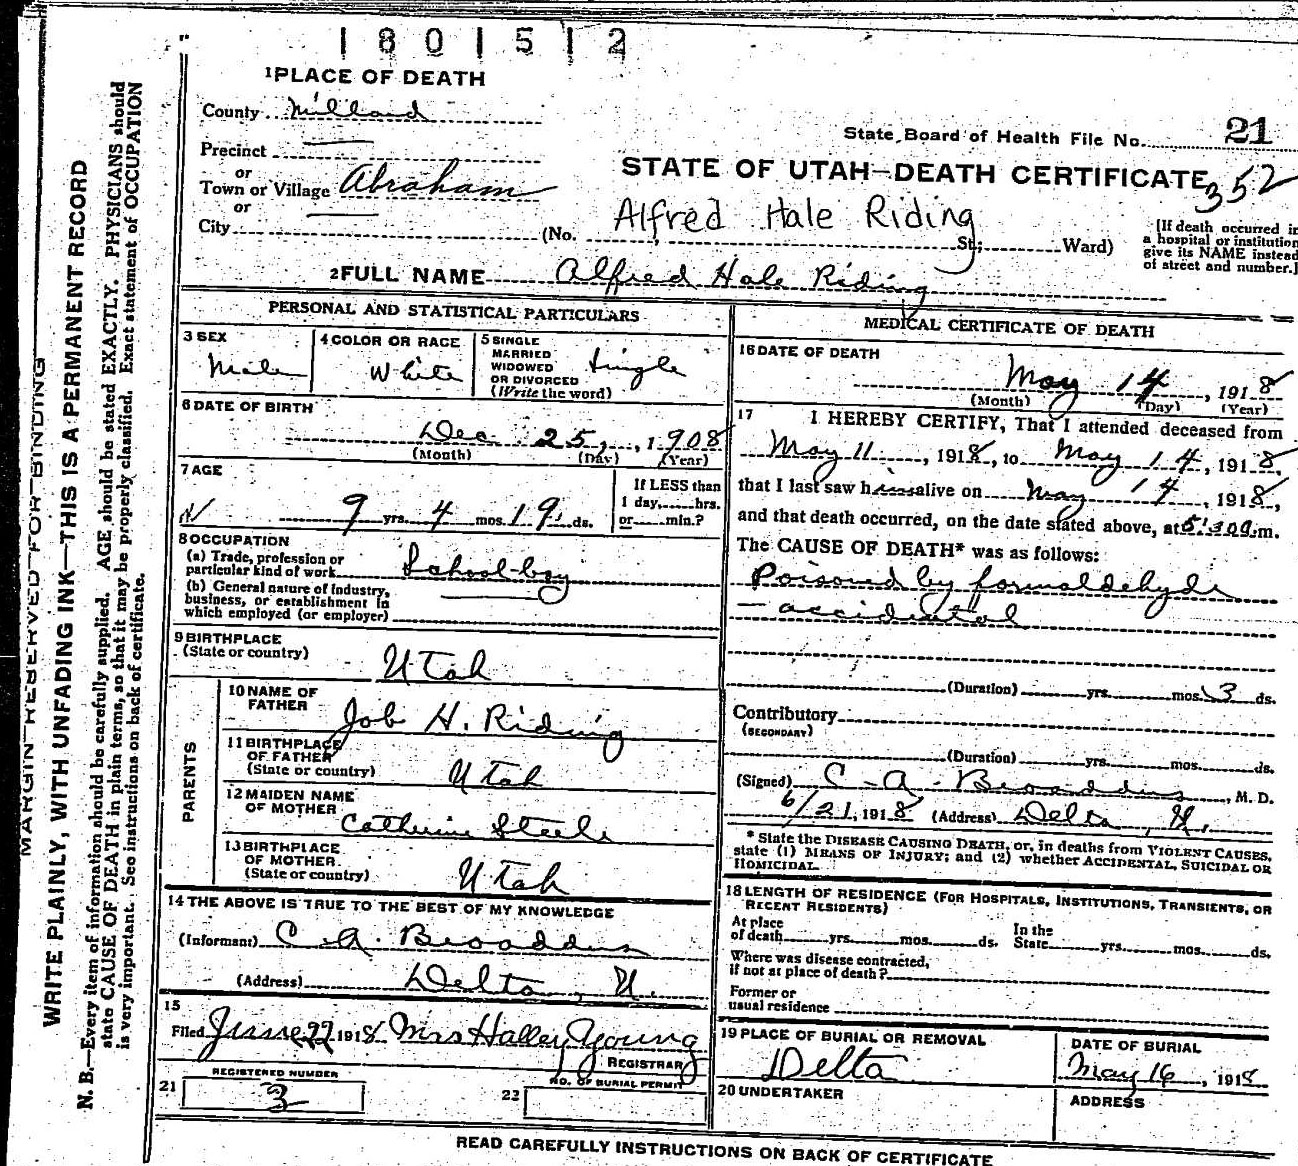 1 8 0 1 5 1 2
1 PLACE OF DEATH
County Millard
Precinct
or
Town or Village Abraham
or
City
(No. St; Ward)
State Board of Health File No. 21
STATE OF UTAH—DEATH CERTIFICATE
352
Alfred Hale Riding
[If death occurred in
a hospital or institution
give its NAME instead
of street and number.]
2 FULL NAME Alfred Hale Riding
PERSONAL AND STATISTICAL PARTICULARS
3 SEX
Male
4 COLOR OR RACE
White
5 SINGLE
MARRIED
WIDOWED
OR DIVORCED
(Write the word)
Single
6 DATE OF BIRTH
Dec 25, 1908
(Month) (Day) (Year)
7 AGE
9 yrs. 4 mos. 19 ds.
If LESS than
1 day, hrs.
or min.?
8 OCCUPATION
(a) Trade, profession or
particular kind of work School-boy
(b) General nature of Industry,
business, or establishment in
which employed (or employer)
9 BIRTHPLACE
(State or country)
Utah
PARENTS
10 NAME OF
FATHER
Job H. Riding
11 BIRTHPLACE
OF FATHER
(State or country)
Utah
12 MAIDEN NAME
OF MOTHER
Catherine Steele
13 BIRTHPLACE
OF MOTHER
(State or country)
Utah
14 THE ABOVE IS TRUE TO THE BEST OF MY KNOWLEDGE
(Informant) C. A. Broaddus
(Address) Delta, U.
15
Filed June 22 1918 Mrs Halley Young
REGISTRAR
REGISTERED NUMBER
21 3
NO. OF BURIAL PERMIT
22
MEDICAL CERTIFICATE OF DEATH
16 DATE OF DEATH
May 14, 1918
(Month) (Day) (Year)
17 I HEREBY CERTIFY, That I attended deceased from
May 11, 1918, to May 14, 1918,
that I last saw him alive on May 14, 1918,
and that death occurred, on the date stated above, at 5:30 a.m.
The CAUSE OF DEATH* was as follows:
Poisoned by formaldehyde
— accidental
(Duration) yrs. mos. 3 ds.
Contributory
(SECONDARY)
(Duration) yrs. mos. ds.
(Signed) C. A. Broaddus, M. D.
6/21, 1918 (Address) Delta, U.
* State the DISEASE CAUSING DEATH, or, in deaths from VIOLENT CAUSES,
state (1) MEANS OF INJURY; and (2) whether ACCIDENTAL, SUICIDAL OR
HOMICIDAL.
18 LENGTH OF RESIDENCE (FOR HOSPITALS, INSTITUTIONS, TRANSIENTS, OR
RECENT RESIDENTS)
At place
of death yrs. mos. ds.
In the
State yrs. mos. ds.
Where was disease contracted,
if not at place of death?
Former or
usual residence
19 PLACE OF BURIAL OR REMOVAL
Delta
DATE OF BURIAL
May 16, 1918
20 UNDERTAKER
ADDRESS
READ CAREFULLY INSTRUCTIONS ON BACK OF CERTIFICATE
MARGIN RESERVED FOR BINDING
WRITE PLAINLY, WITH UNFADING INK—THIS IS A PERMANENT RECORD
N. B.—Every item of information should be carefully supplied. AGE should be stated EXACTLY. PHYSICIANS should
state CAUSE OF DEATH in plain terms, so that it may be properly classified. Exact statement of OCCUPATION
is very important. See instructions on back of certificate.